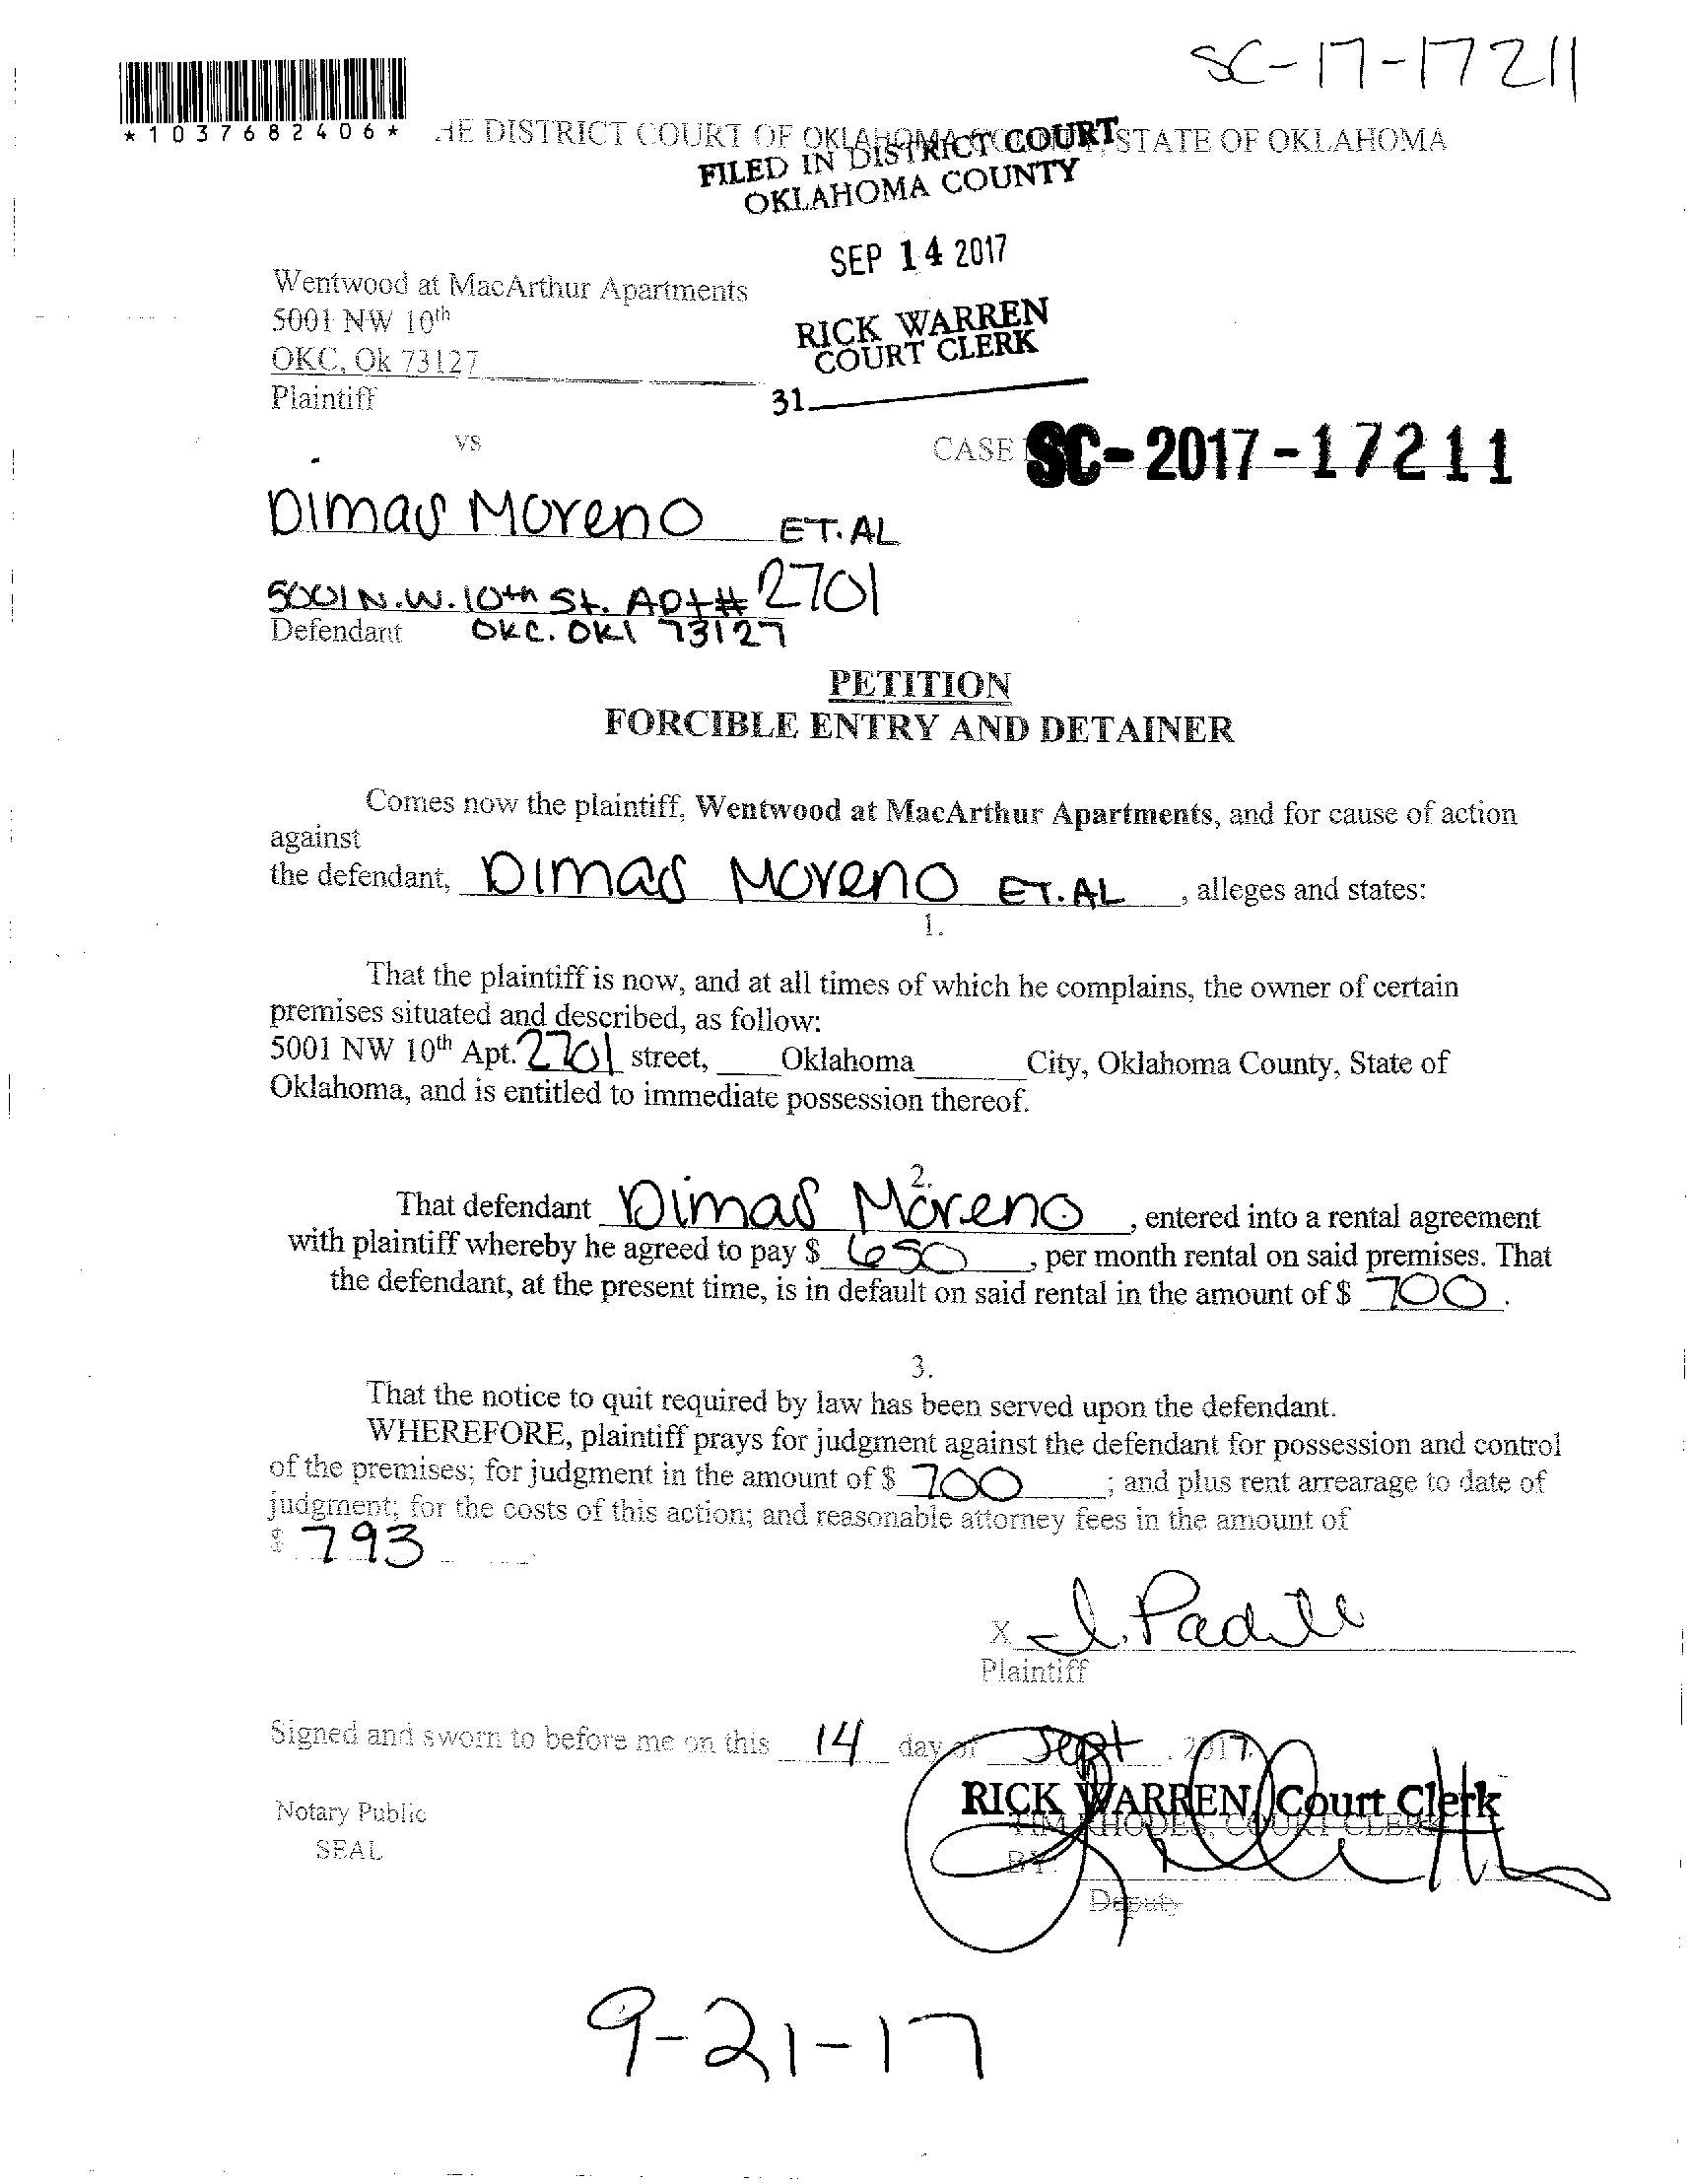 SC-17-17211
*1037682406*
HE DISTRICT COURT OF OKLAHOMA COUNTY, STATE OF OKLAHOMA
FILED IN DISTRICT COURT
OKLAHOMA COUNTY
SEP 14 2017
RICK WARREN
COURT CLERK
31
Wentwood at MacArthur Apartments
5001 NW 10th
OKC, Ok 73127
Plaintiff
vs
CASE SC-2017-17211
Dimas Moreno ET.AL
5001 N.W. 10th St. Apt# 2701
Defendant OKC. OKl 73127
PETITION
FORCIBLE ENTRY AND DETAINER
Comes now the plaintiff, Wentwood at MacArthur Apartments, and for cause of action
against
the defendant, Dimas Moreno ET.AL, alleges and states:
1.
That the plaintiff is now, and at all times of which he complains, the owner of certain
premises situated and described, as follow:
5001 NW 10th Apt. 2701 street, ____Oklahoma_______City, Oklahoma County, State of
Oklahoma, and is entitled to immediate possession thereof.
2.
That defendant Dimas Moreno, entered into a rental agreement
with plaintiff whereby he agreed to pay $ 650, per month rental on said premises. That
the defendant, at the present time, is in default on said rental in the amount of $ 700.
3.
That the notice to quit required by law has been served upon the defendant.
WHEREFORE, plaintiff prays for judgment against the defendant for possession and control
of the premises; for judgment in the amount of $ 700; and plus rent arrearage to date of
judgment; for the costs of this action; and reasonable attorney fees in the amount of
$ 793
X I. Padille
Plaintiff
Signed and sworn to before me on this 14 day of Sept, 2017.
RICK WARREN, Court Clerk
TIM RHODES, COURT CLERK
Notary Public
SEAL
BY:
Deputy
9-21-17